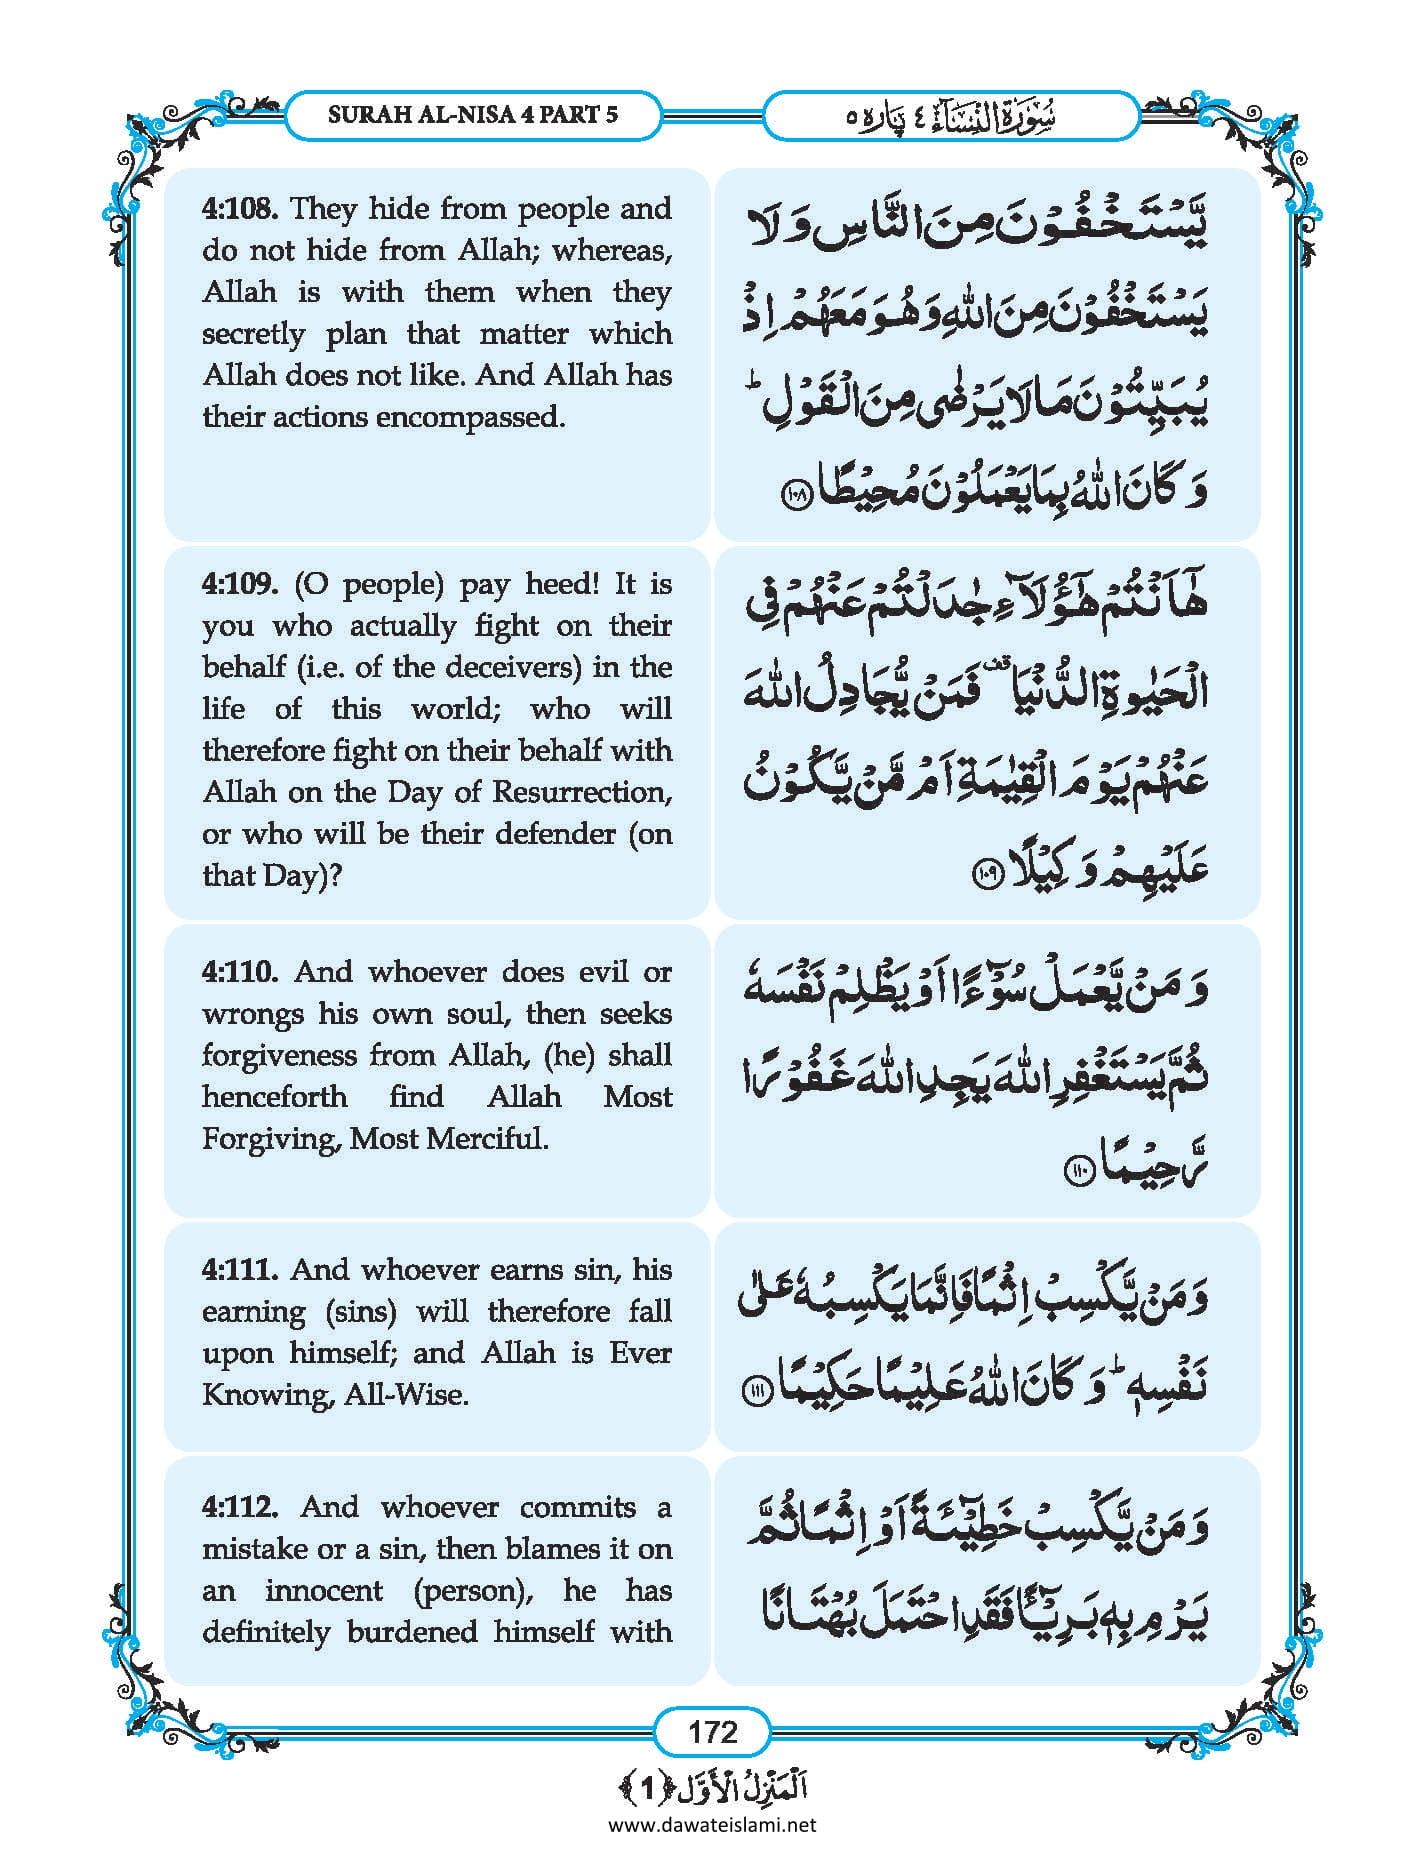 SURAH AL-NISA 4 PART 5
سُوْرَةُ النِّسَآء ٤ پَارَہ ٥
4:108. They hide from people and
do not hide from Allah; whereas,
Allah is with them when they
secretly plan that matter which
Allah does not like. And Allah has
their actions encompassed.
یَّسْتَخْفُوْنَ مِنَ النَّاسِ وَ لَا
یَسْتَخْفُوْنَ مِنَ اللّٰهِ وَ هُوَ مَعَهُمْ اِذْ
یُبَیِّتُوْنَ مَا لَا یَرْضٰى مِنَ الْقَوْلِ ؕ
وَ كَانَ اللّٰهُ بِمَا یَعْمَلُوْنَ مُحِیْطًا ﴿۱۰۸﴾
4:109. (O people) pay heed! It is
you who actually fight on their
behalf (i.e. of the deceivers) in the
life of this world; who will
therefore fight on their behalf with
Allah on the Day of Resurrection,
or who will be their defender (on
that Day)?
هٰۤاَنْتُمْ هٰۤؤُلَآءِ جٰدَلْتُمْ عَنْهُمْ فِی
الْحَیٰوةِ الدُّنْیَا ۫ فَمَنْ یُّجَادِلُ اللّٰهَ
عَنْهُمْ یَوْمَ الْقِیٰمَةِ اَمْ مَّنْ یَّكُوْنُ
عَلَیْهِمْ وَكِیْلًا ﴿۱۰۹﴾
4:110. And whoever does evil or
wrongs his own soul, then seeks
forgiveness from Allah, (he) shall
henceforth find Allah Most
Forgiving, Most Merciful.
وَ مَنْ یَّعْمَلْ سُوْٓءًا اَوْ یَظْلِمْ نَفْسَهٗ
ثُمَّ یَسْتَغْفِرِ اللّٰهَ یَجِدِ اللّٰهَ غَفُوْرًا
رَّحِیْمًا ﴿۱۱۰﴾
4:111. And whoever earns sin, his
earning (sins) will therefore fall
upon himself; and Allah is Ever
Knowing, All-Wise.
وَ مَنْ یَّكْسِبْ اِثْمًا فَاِنَّمَا یَكْسِبُهٗ عَلٰى
نَفْسِهٖ ؕ وَ كَانَ اللّٰهُ عَلِیْمًا حَكِیْمًا ﴿۱۱۱﴾
4:112. And whoever commits a
mistake or a sin, then blames it on
an innocent (person), he has
definitely burdened himself with
وَ مَنْ یَّكْسِبْ خَطِیْٓئَةً اَوْ اِثْمًا ثُمَّ
یَرْمِ بِهٖ بَرِیْٓــٴًـا فَقَدِ احْتَمَلَ بُهْتَانًا
172
اَلْمَنْزِلُ الْاَوَّل ﴿1﴾
www.dawateislami.net